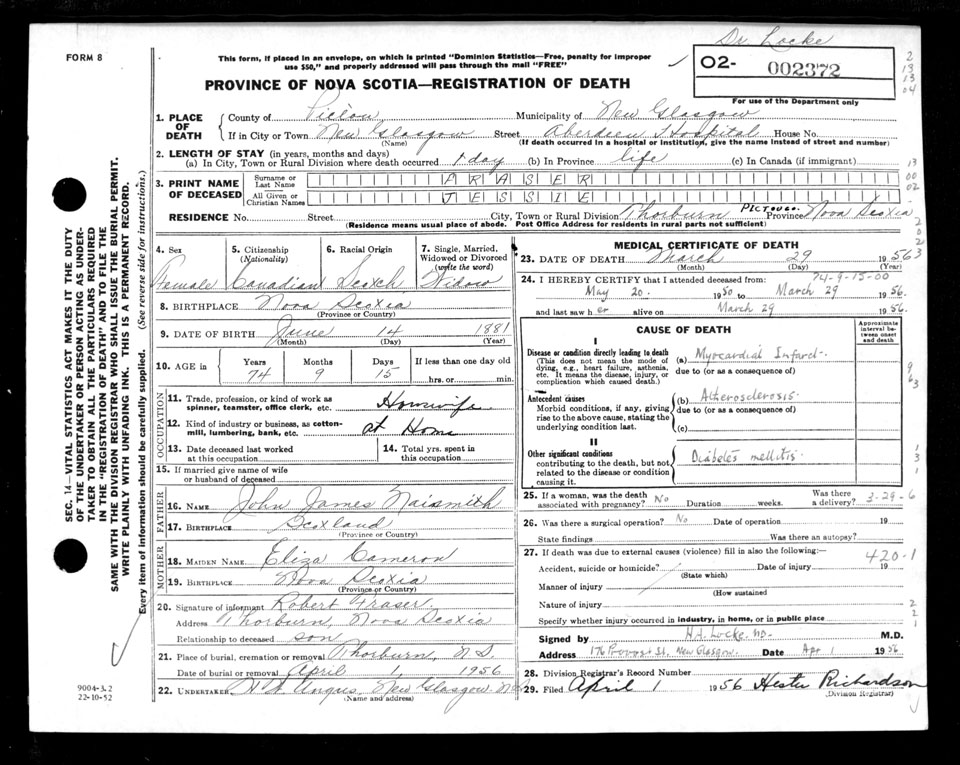 Dr. Locke
FORM 8
This form, if placed in an envelope, on which is printed "Dominion Statistics—Free, penalty for improper
use $50," and properly addressed will pass through the mail "FREE"
02- 002372
PROVINCE OF NOVA SCOTIA—REGISTRATION OF DEATH
For use of the Department only
1. PLACE OF DEATH
County of Pictou Municipality of New Glasgow
If in City or Town New Glasgow Street Aberdeen Hospital House No.
(Name) (If death occurred in a hospital or institution, give the name instead of street and number)
2. LENGTH OF STAY (in years, months and days)
(a) In City, Town or Rural Division where death occurred 1 day (b) In Province life (c) In Canada (if immigrant)
3. PRINT NAME OF DECEASED
Surname or Last Name FRASER
All Given or Christian Names JESSIE
RESIDENCE No. Street City, Town or Rural Division Thorburn PICTOU. Province Nova Scotia
(Residence means usual place of abode. Post Office Address for residents in rural parts not sufficient)
4. Sex
Female
5. Citizenship (Nationality)
Canadian
6. Racial Origin
Scotch
7. Single, Married, Widowed or Divorced (write the word)
Widow
8. BIRTHPLACE Nova Scotia
(Province or Country)
9. DATE OF BIRTH June 14 1881
(Month) (Day) (Year)
10. AGE in Years Months Days If less than one day old
74 9 15 hrs. or min.
OCCUPATION
11. Trade, profession, or kind of work as
spinner, teamster, office clerk, etc. Housewife
12. Kind of industry or business, as cotton-
mill, lumbering, bank, etc. at Home
13. Date deceased last worked
at this occupation
14. Total yrs. spent in
this occupation
15. If married give name of wife
or husband of deceased
FATHER
16. NAME John James Naismith
17. BIRTHPLACE Scotland
(Province or Country)
MOTHER
18. MAIDEN NAME Eliza Cameron
19. BIRTHPLACE Nova Scotia
(Province or Country)
20. Signature of informant Robert Fraser.
Address Thorburn, Nova Scotia
Relationship to deceased son
21. Place of burial, cremation or removal Thorburn, N.S.
Date of burial or removal April 1, 1956
22. UNDERTAKER Angus, New Glasgow, N.S.
(Name and address)
MEDICAL CERTIFICATE OF DEATH
23. DATE OF DEATH March 29 1956
(Month) (Day) (Year)
74-9-15-00
24. I HEREBY CERTIFY that I attended deceased from:
May 20. 1950 to March 29 1956.
and last saw her alive on March 29 1956.
CAUSE OF DEATH
Approximate interval between onset and death
I
Disease or condition directly leading to death
(This does not mean the mode of
dying, e.g., heart failure, asthenia,
etc. It means the disease, injury, or
complication which caused death.)
(a) Myocardial Infarct.
due to (or as a consequence of)
Antecedent causes
Morbid conditions, if any, giving
rise to the above cause, stating the
underlying condition last.
(b) Atherosclerosis.
due to (or as a consequence of)
(c)
II
Other significant conditions
contributing to the death, but not
related to the disease or condition
causing it.
Diabetes mellitis.
25. If a woman, was the death
associated with pregnancy? No Duration weeks. Was there a delivery? 3-29-6
26. Was there a surgical operation? No Date of operation 19
State findings Was there an autopsy?
27. If death was due to external causes (violence) fill in also the following:— 420-1
Accident, suicide or homicide? Date of injury 19
(State which)
Manner of injury
(How sustained
Nature of injury
Specify whether injury occurred in industry, in home, or in public place
Signed by H.A. Locke, MD. M.D.
Address 176 Provost St. New Glasgow. Date Apr 1 1956
28. Division Registrar's Record Number
29. Filed April 1 1956 Hester Richardson
(Division Registrar)
SEC. 14—VITAL STATISTICS ACT MAKES IT THE DUTY
OF THE UNDERTAKER OR PERSON ACTING AS UNDER-
TAKER TO OBTAIN ALL THE PARTICULARS REQUIRED
IN THE "REGISTRATION OF DEATH" AND TO FILE THE
SAME WITH THE DIVISION REGISTRAR WHO SHALL ISSUE THE BURIAL PERMIT.
WRITE PLAINLY WITH UNFADING INK. THIS IS A PERMANENT RECORD.
Every item of information should be carefully supplied. (See reverse side for instructions.)
9004-3.2
22-10-52